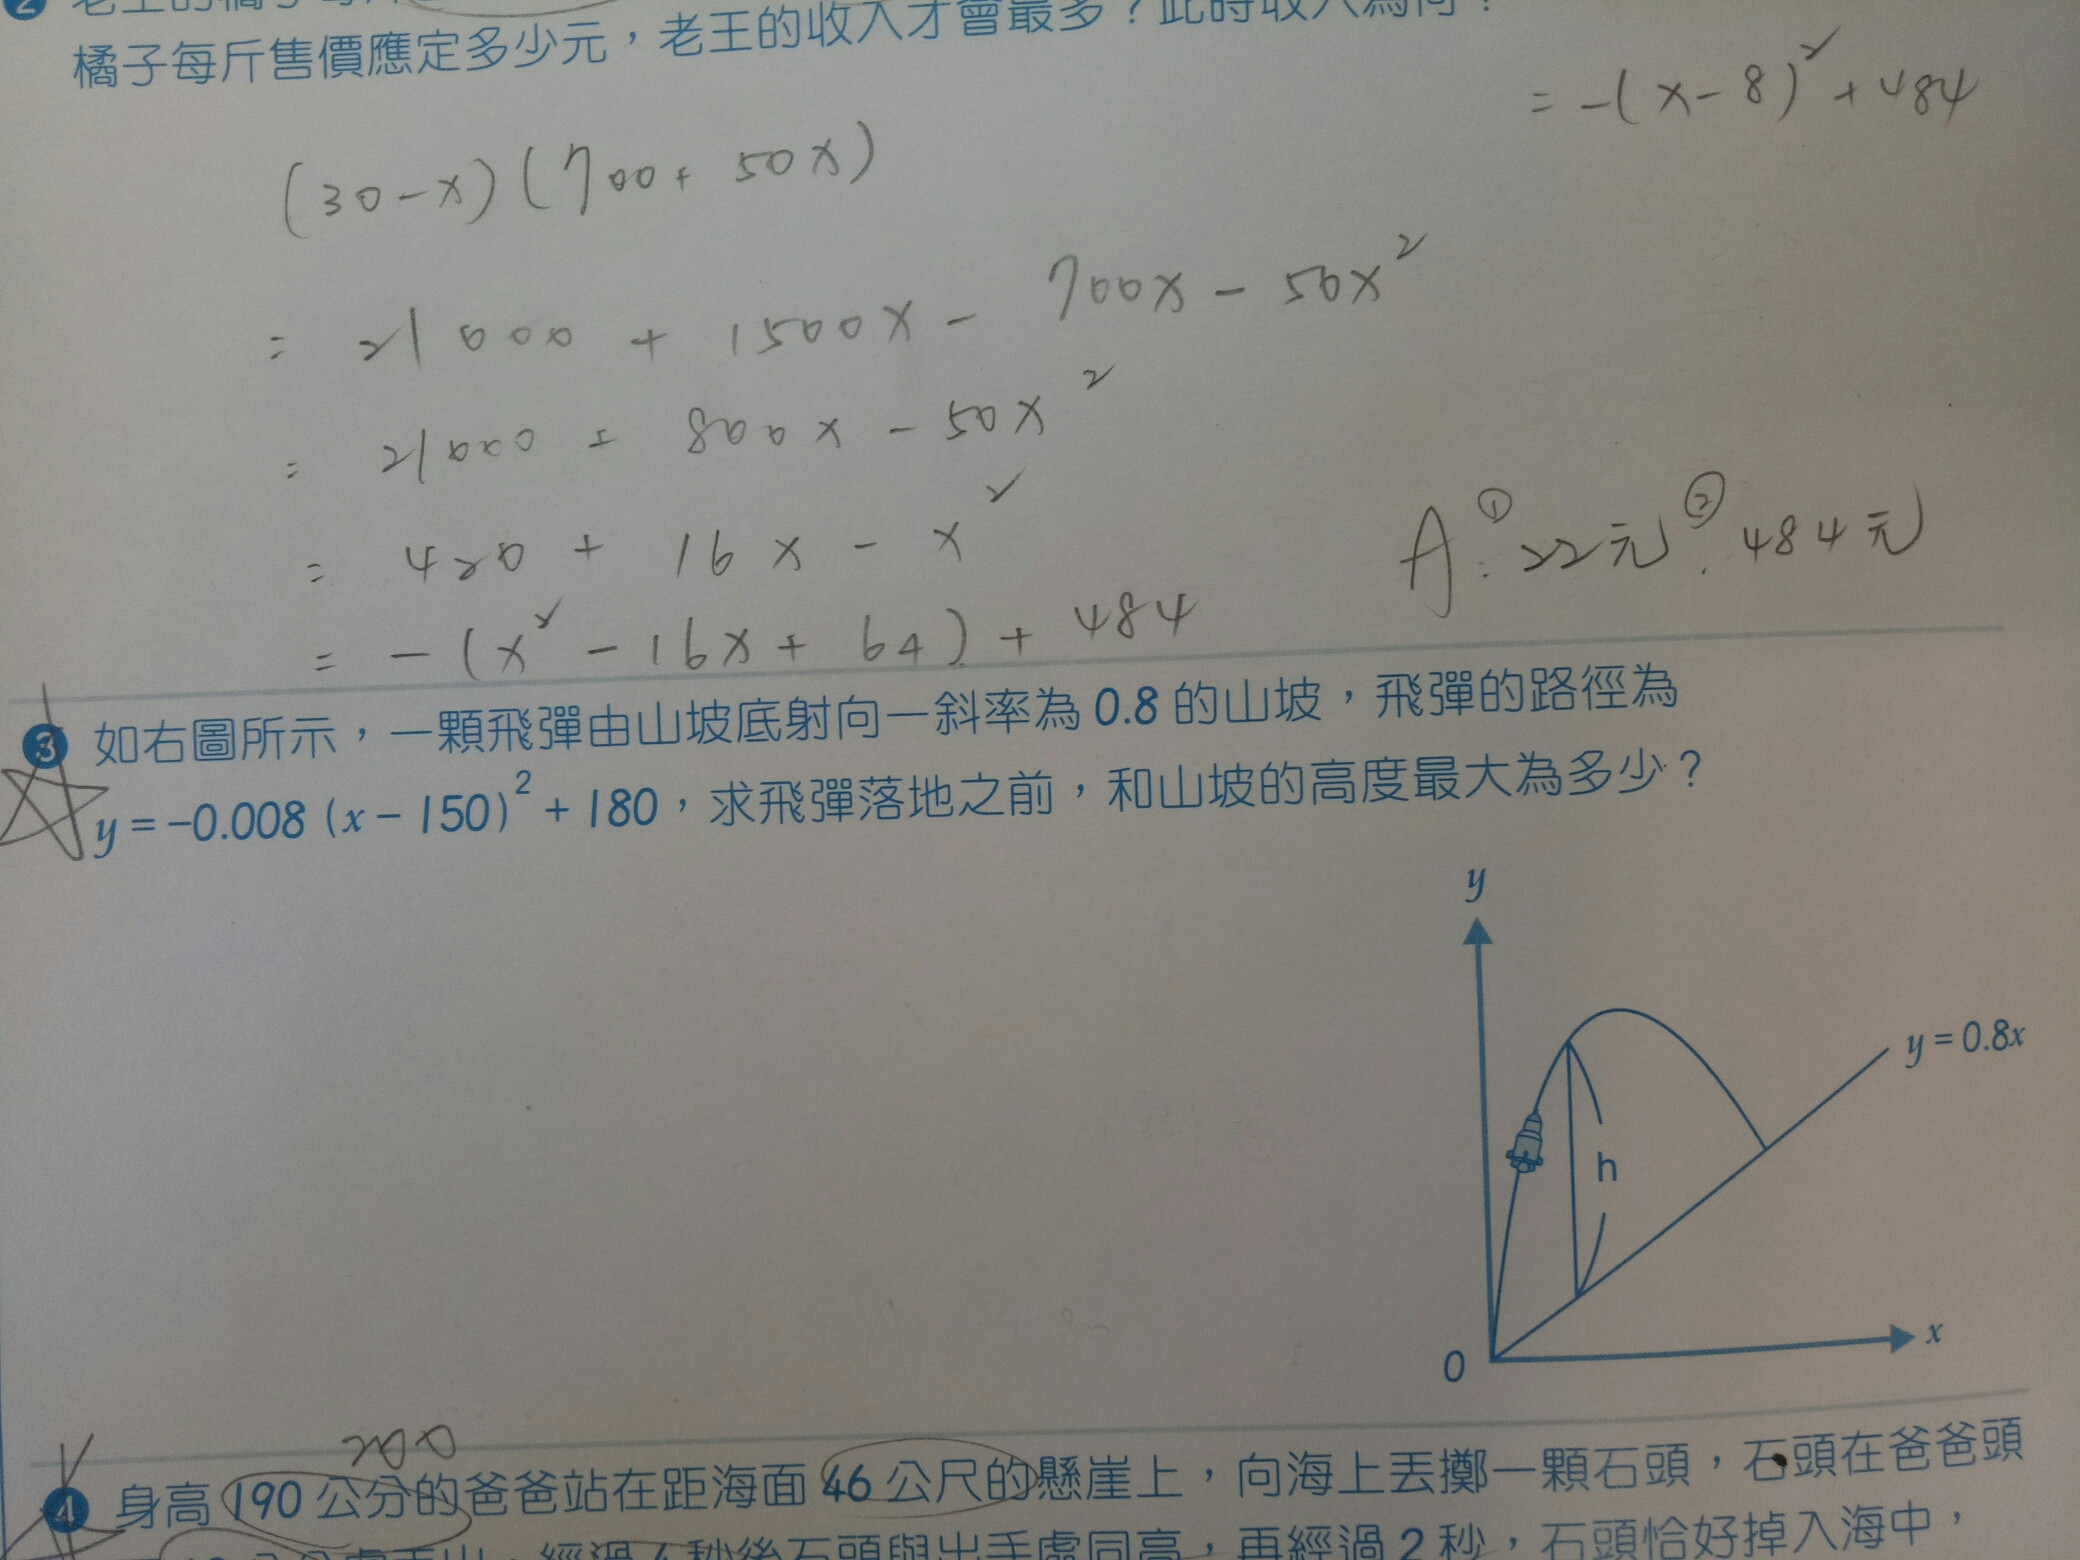 橘子每斤售價應定多少元，老王的收入才會最多？此時收入為何？
= -(x-8)² + 484
(30-x)(700+50x)
= 21000 + 1500x - 700x - 50x²
= 21000 + 800x - 50x²
= 420 + 16x - x²
= -(x² - 16x + 64) + 484
A: ① 22元 ② 484元
3 如右圖所示，一顆飛彈由山坡底射向一斜率為 0.8 的山坡，飛彈的路徑為
y = -0.008 (x - 150)² + 180，求飛彈落地之前，和山坡的高度最大為多少？
y
y = 0.8x
h
0
x
200
4 身高 190 公分的爸爸站在距海面 46 公尺的懸崖上，向海上丟擲一顆石頭，石頭在爸爸頭
秒後石頭與出手處同高，再經過 2 秒，石頭恰好掉入海中，